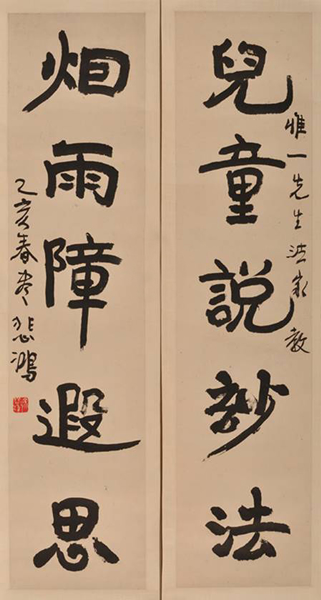 兒童說玅法
惟一先生法家教
烟雨障遐思
乙亥春尽 悲鴻